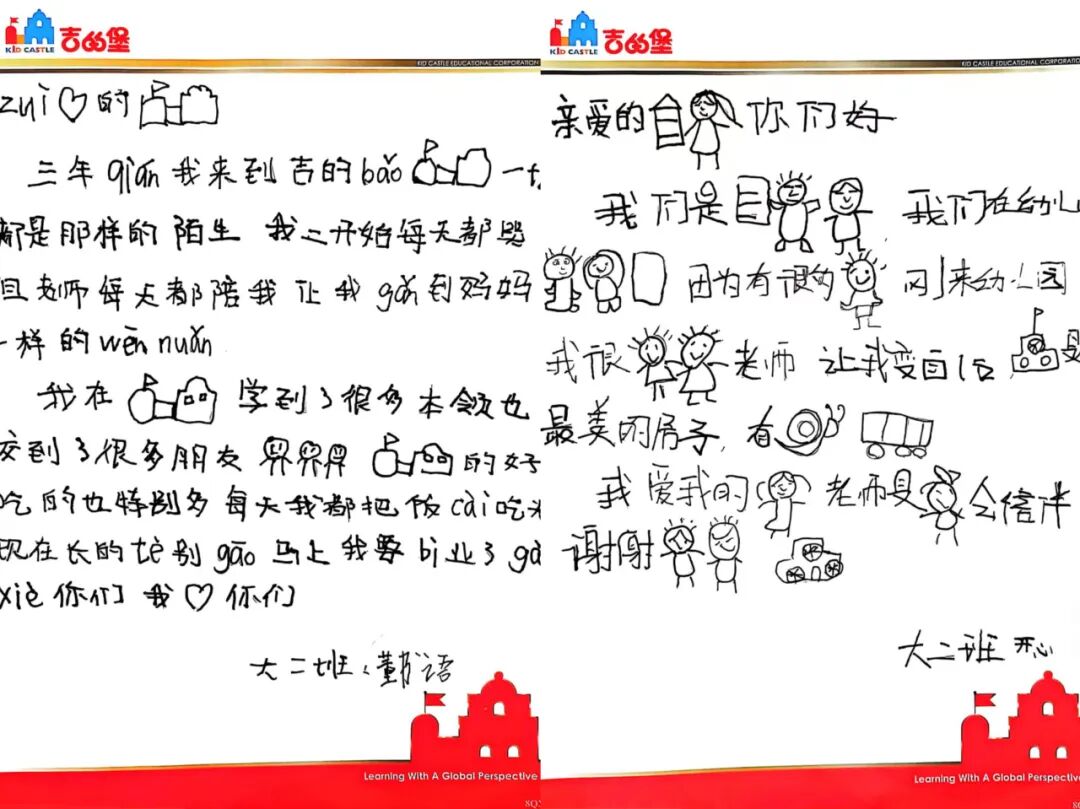 KID CASTLE 吉的堡
KID CASTLE EDUCATIONAL CORPORATION
zuì 的
三年 qián 我来到吉的 bǎo 一
都是那样的陌生 我一开始每天都哭
但老师每天都陪我 让我 gǎn 到妈妈
一样的 wēn nuǎn
我在 学到了很多本领也
交到了很多朋友 的好
吃的也特别多 每天我都把饭 cài 吃
现在长的 tè 别 gāo 马上我要 bì 业了 gǎn
xiè 你们 我 你们
大二班
Learning With A Global Perspective
KID CASTLE 吉的堡
KID CASTLE EDUCATIONAL CORPORATION
亲爱的 你们好
我们是 我们在幼儿
因为有很多 刚来幼儿园
我很 老师 让我变自信 是
最美的房子,有
我爱我的 老师是 会
谢谢
大二班 开心
Learning With A Global Perspective